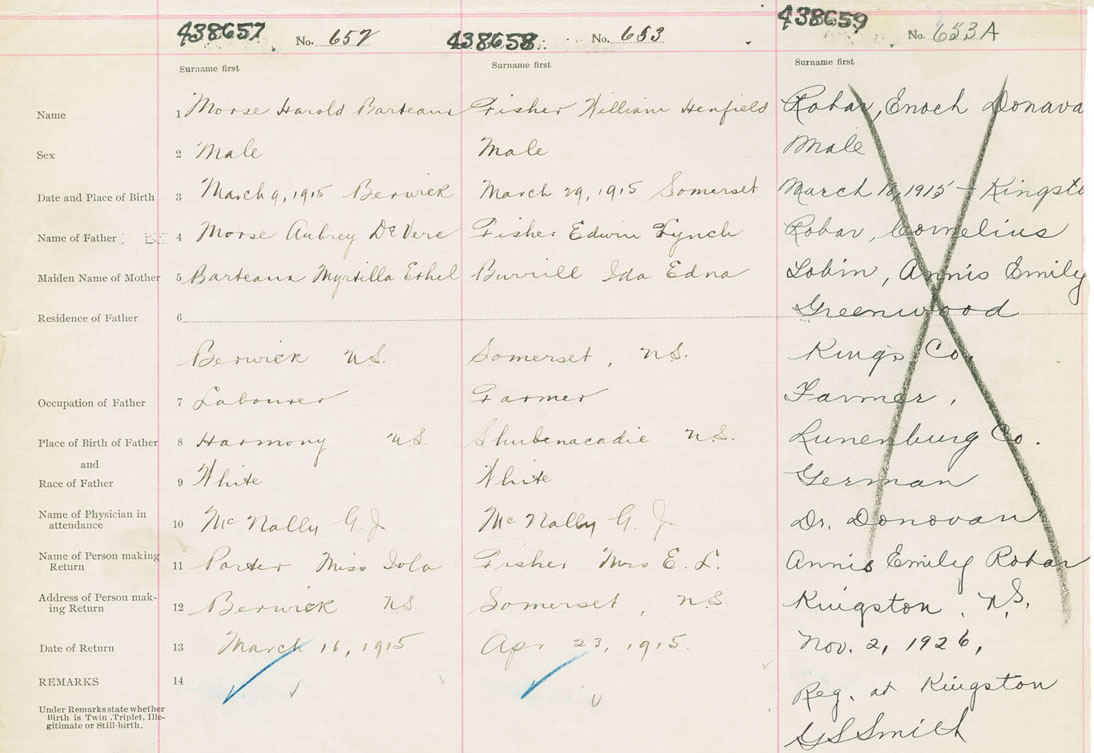 438657 No. 657 438658 No. 653 438659 No. 653A
Surname first Surname first Surname first
Name 1 Morse Harold Barteaux Fisher William Henfield Robar, Enoch Donava
Sex 2 Male Male Male
Date and Place of Birth 3 March 9, 1915 Berwick March 29, 1915 Somerset March 18, 1915 - Kingsto
Name of Father 4 Morse Aubrey DeVere Fisher Edwin Lynch Robar, Cornelius
Maiden Name of Mother 5 Barteaux Myrtilla Ethel Burrill Ida Edna Lobin, Annis Emily
Residence of Father 6 Greenwood
Berwick N.S. Somerset, N.S. Kings Co.
Occupation of Father 7 Labourer Farmer Farmer,
Place of Birth of Father 8 Harmony N.S. Shubenacadie N.S. Lunenburg Co.
and
Race of Father 9 White White German
Name of Physician in
attendance 10 McNally G. J. McNally G. J. Dr. Donovan
Name of Person making
Return 11 Porter Miss Iola Fisher Mrs E. L. Annis Emily Robar
Address of Person mak-
ing Return 12 Berwick N.S. Somerset, N.S. Kingston, N.S.
Date of Return 13 March 16, 1915 Apr 23, 1915. Nov. 2, 1926,
REMARKS 14 Reg. at Kingston
Under Remarks state whether
Birth is Twin, Triplet, Ille-
gitimate or Still-birth.
G S Smith